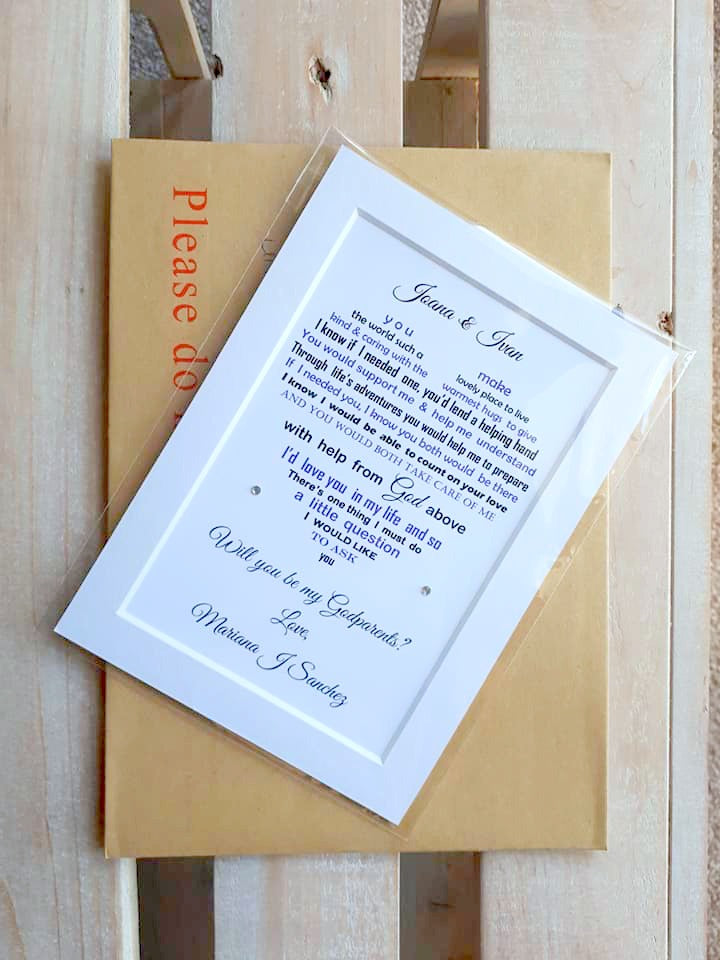 Please do
Joana & Ivan
you make
the world such a lovely place to live
kind & caring with the warmest hugs to give
I know if I needed one, you'd lend a helping hand
You would support me & help me understand
Through life's adventures you would help me to prepare
If I needed you, I know you both would be there
I know I would be able to count on your love
AND YOU WOULD BOTH TAKE CARE OF ME
with help from God above
I'd love you in my life and so
There's one thing I must do
a little question
I WOULD LIKE
TO ASK
you
Will you be my Godparents?
Love,
Mariana J Sanchez